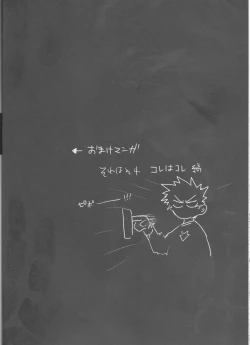 ← おまけマンガ
それはそれ コレはコレ 編
ピポー !!!